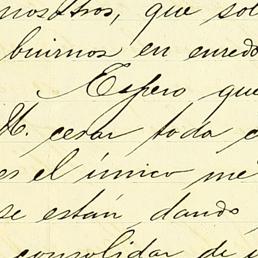 nosotros, que sol
buirnos en enredo
Espero que
M. cesar toda c
es el único me
se están dando
consolidar de